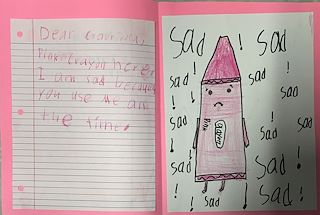 Dear Gabriela,
Pink crayon here.
I am sad because
you use me all
the time!
sad ! sad
sad ! ! sad !
sad ! sad
sad ! sad
Pink
Crayon
sad sad
! sad !
! sad ! sad !